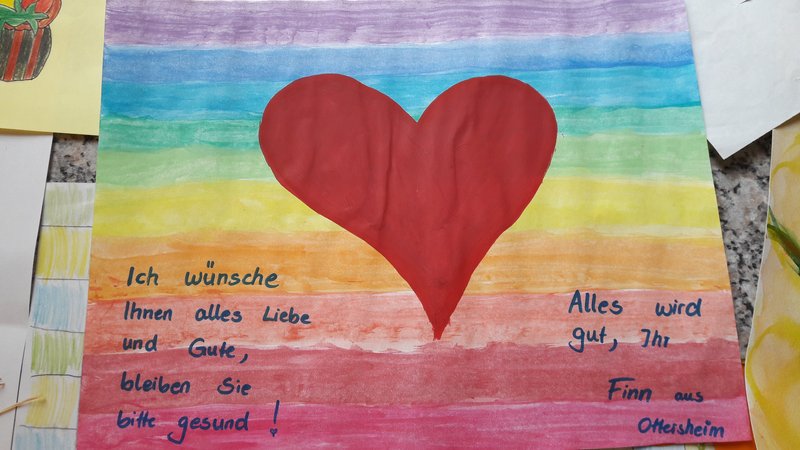 Ich wünsche
Ihnen alles Liebe
und Gute,
bleiben Sie
bitte gesund !
Alles wird
gut, Ihr
Finn aus
Ottersheim